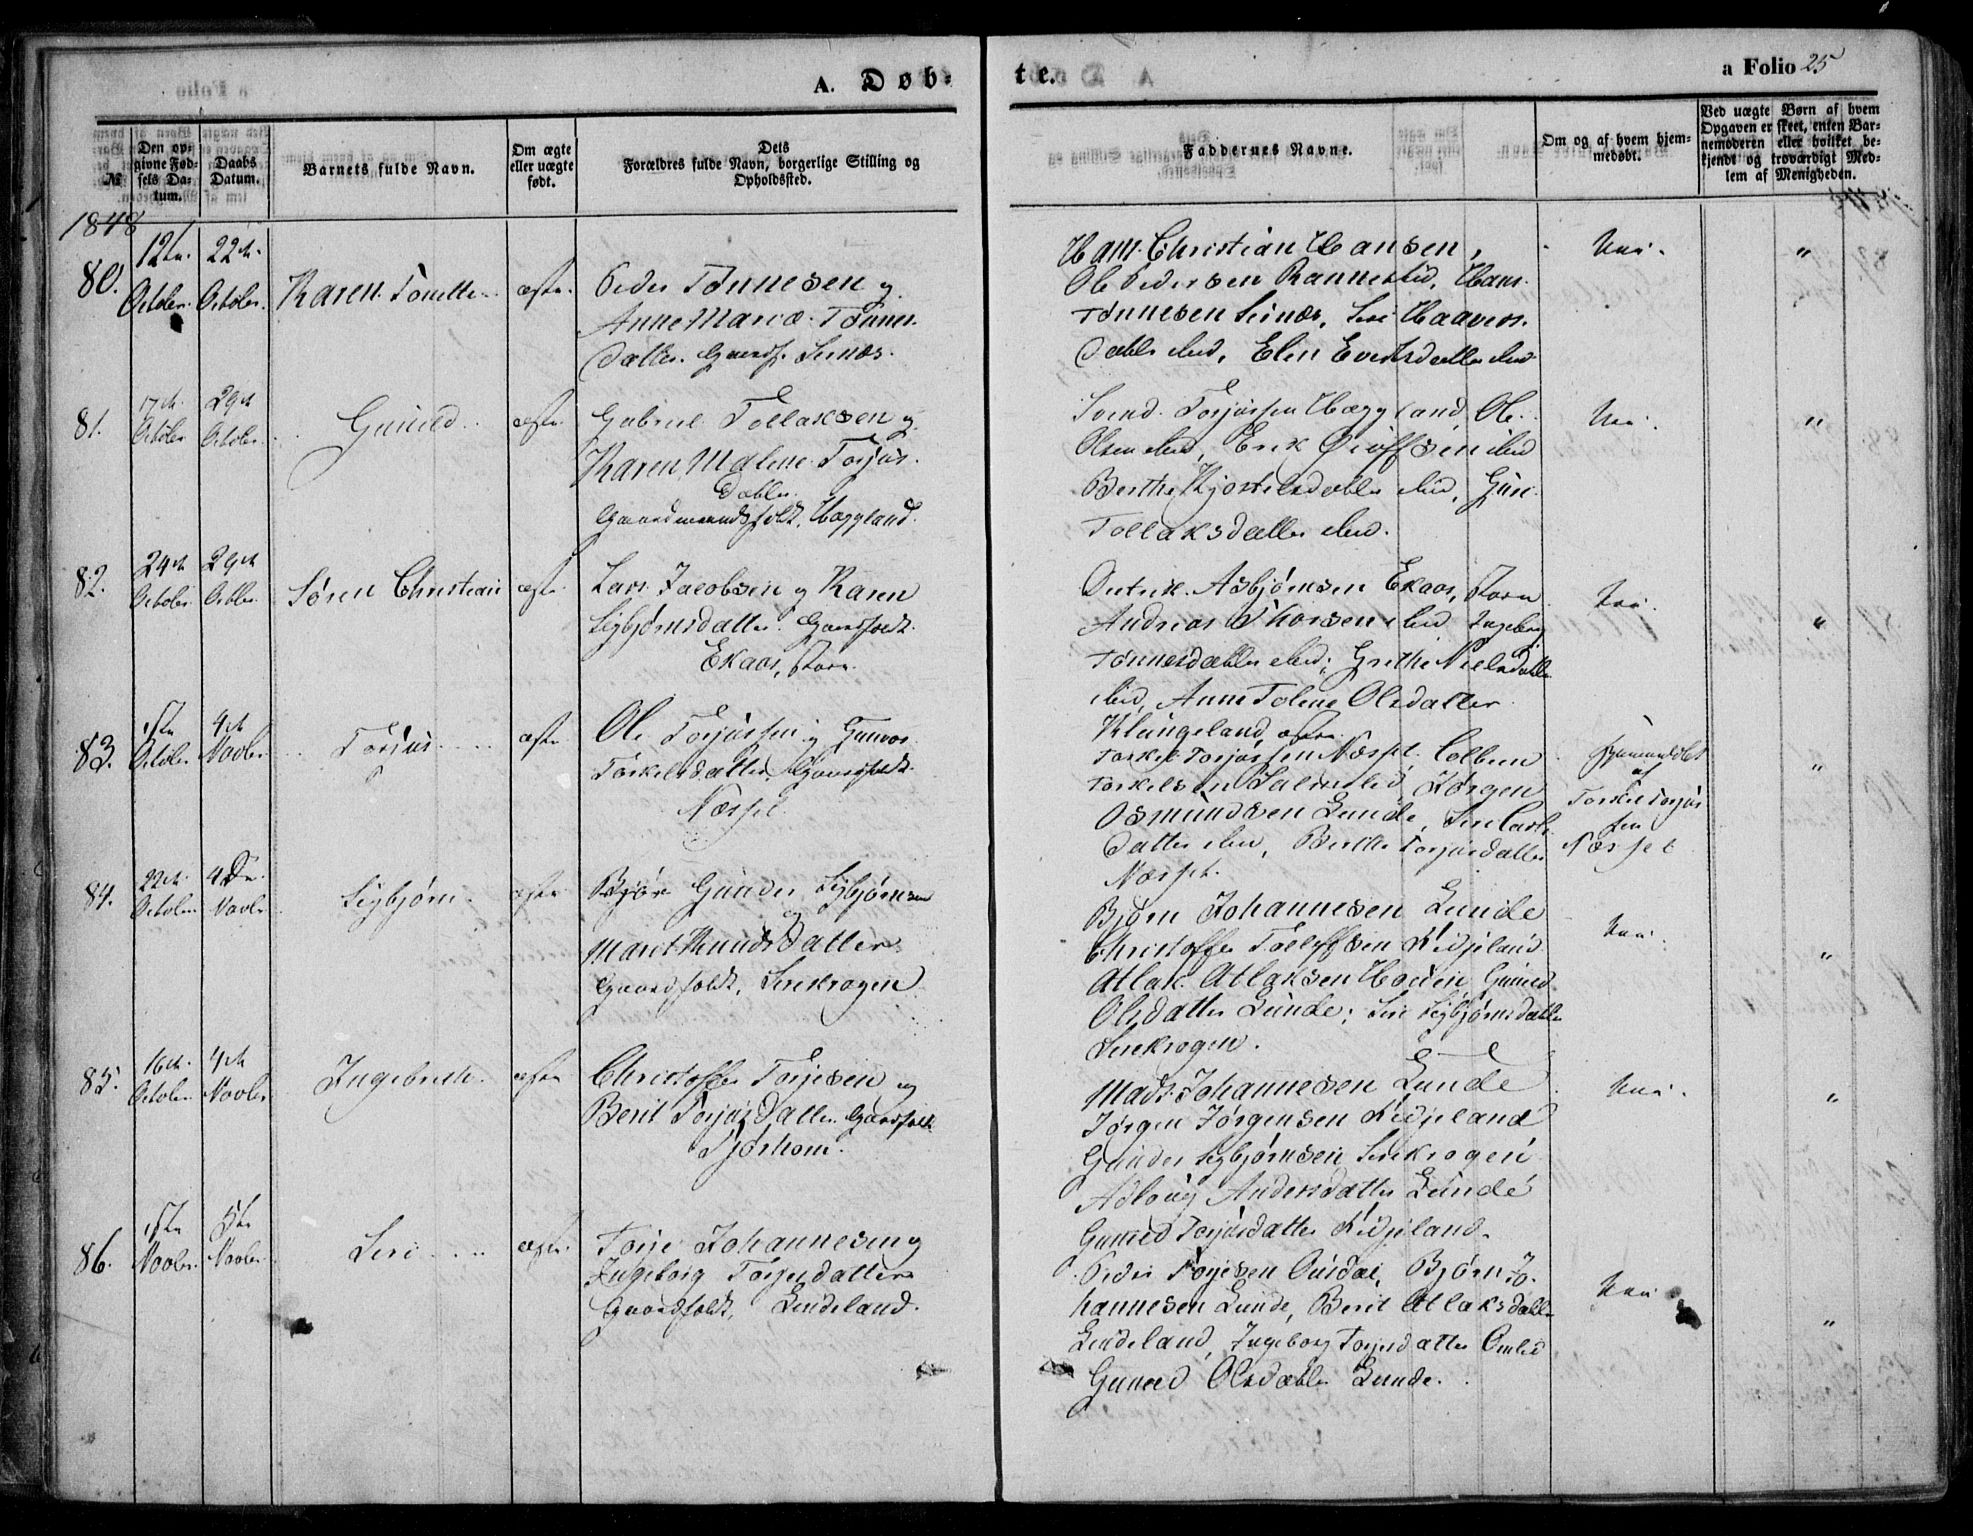 A. Døb-
te.
a Folio 25
№
Den op-
givne Fød-
sels Da-
tum.
Daabs
Datum.
Barnets fulde Navn.
Om ægte
eller uægte
født.
Dets
Forældres fulde Navn, borgerlige Stilling og
Opholdssted.
Faddernes Navne.
Om og af hvem hjem-
medøbt.
Ved uægte Børn af hvem
Opgaven er skeet, enten Bar-
nemoderen eller hvilket be-
kjendt og troværdigt Med-
lem af Menigheden.
1848
80.
12te
October
22de
October
Karen Tonette
ægte
Peder Tønnesen og
Anne Marie Tønnes-
datter. Gaardf. Sirnæs.
Hans Christian Hansen,
Ole Pedersen Rannestad, Hans
Tønnesen Sirnæs, Siri Haavers-
datter ibid, Elen Evertsdatter ibid
Nei.
"
81.
17de
October
29de
October
Guneld
ægte
Gabriel Tollaksen og
Karen Malene Torjus-
datter
Gaardmandsfolk, Haggland.
Svend Torjussen Haggland, Ole
Olsen ibid, Erik ibid
Berthe Kjostelsdatter ibid, Guri
Tollaksdatter ibid.
Nei.
"
82.
24de
October
29de
October
Søren Christian
ægte
Lars Jacobsen og Karen
Sigbjørnsdatter. Gaardfolk.
Ekaas,
Asbjørnsen Ekaas,
Andreas Thorsen ibid Ingeborg
Tønnesdatter ibid, Grethe Nielsdatter
ibid, Anne Tolene Olsdatter
Klungeland,
Nei.
"
83.
1ste
October
4de
Novbr
Torjus
ægte
Ole Torjussen og Gunvor
Torkelsdatter, Gaardfolk.
Næsset.
Torkel Torjussen Næsset, Colben
Torkelsen Jørgen
Osmundsen Lunde, Siri
datter ibid, Berthe Torjusdatter
Næsset.
hjemmedøbt
af
Torkel Torjus
sen
Næsset
"
84.
22de
October
4de
Novbr
Sigbjørn
ægte
Gunder Sigbjørnsen
og
Marit Knudsdatter
Gaardfolk, Sirekrogen
Bjørn Johannesen Lunde
Christoffer Tollefsen Kidjeland
Atlak Atlaksen Guneld
Olsdatter Lunde; Siri Sigbjørnsdatter
Sirekrogen.
Nei.
"
85.
16de
October
4de
Novbr
Ingebreth
ægte
Christoffer Torjesen og
Berit Torjusdatter Gaardfolk
Tjørhom.
Mads Johannesen Lunde
Jørgen Jørgensen Kidjeland
Gunder Sigbjørnsen Sirekrogen
Adlaug Andersdatter Lunde
Guneld Torjusdatter Kidjeland.
Nei.
"
86.
1ste
Novbr
5te
Novbr
Siri
ægte
Torje Johannesen og
Ingeborg Torjesdatter
Gaardfolk, Lindeland.
Peder Torjesen Ousdal, Bjørn Jo-
hannesen Lunde, Berit Atlaksdatter
Lindeland, Ingeborg Torjesdatter Omlid
Guneld Olsdatter Lunde.
Nei.
"